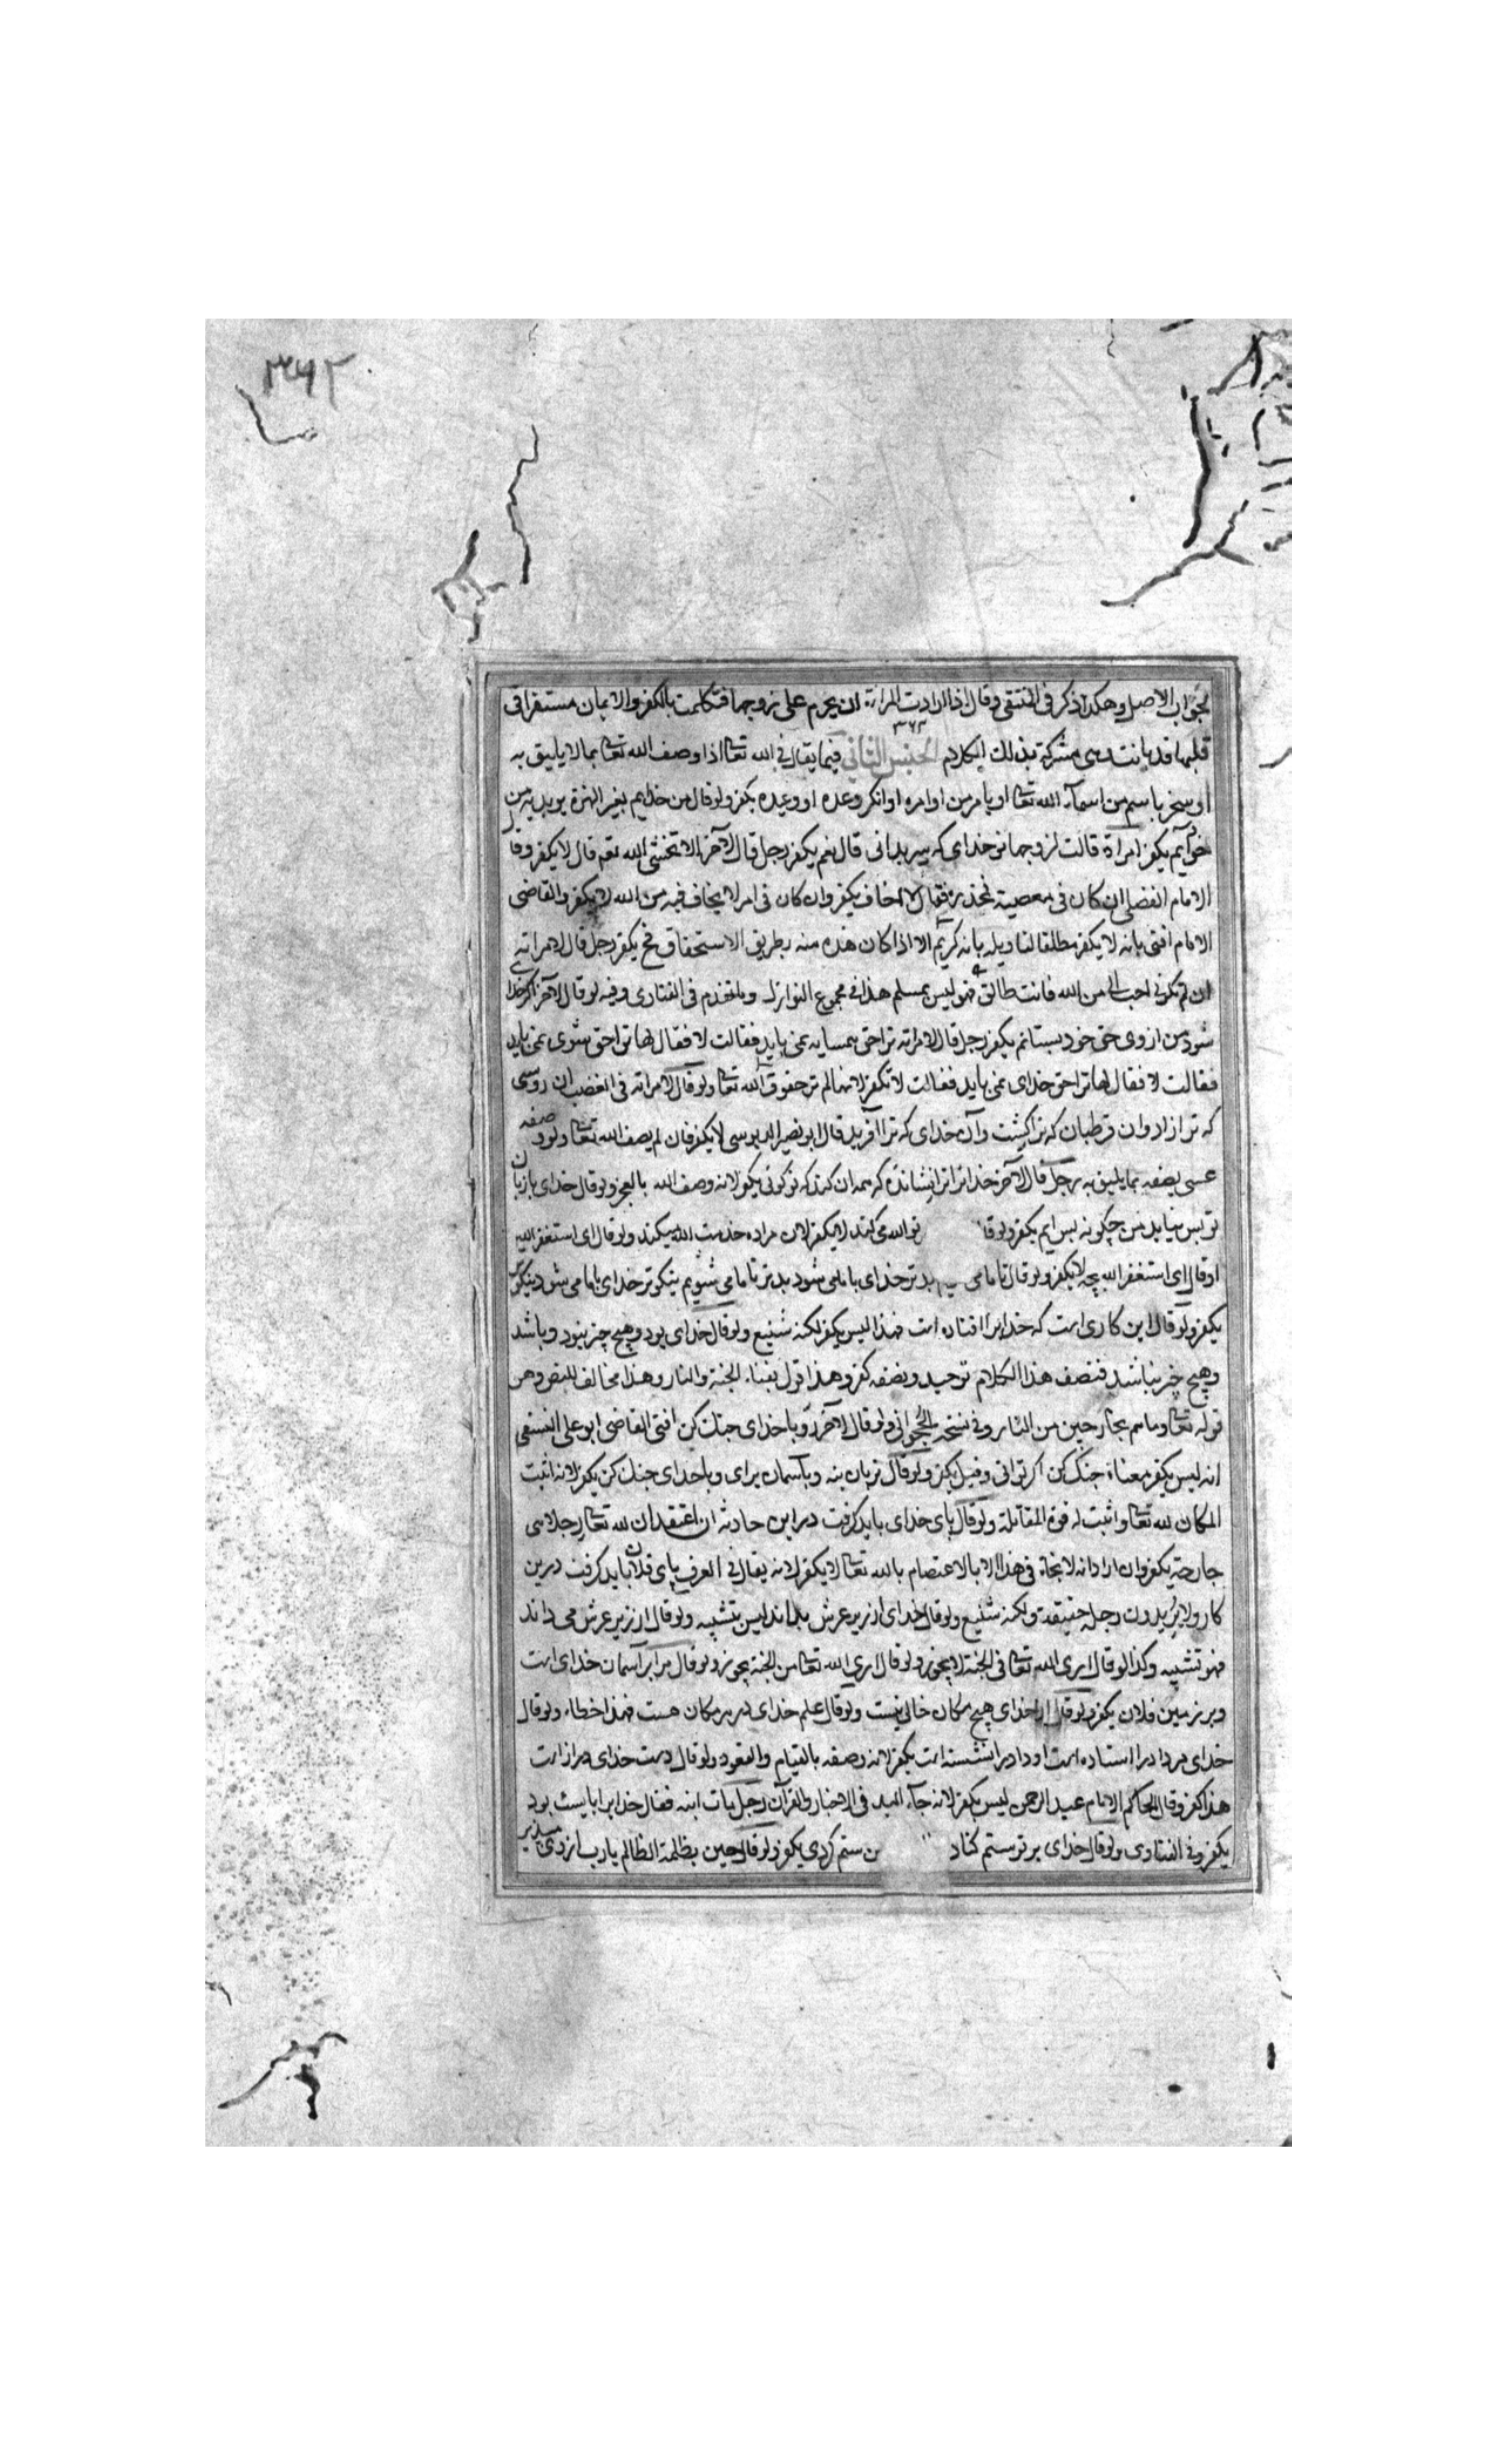 ٣٦٢
بجواب الاصل وهكذا ذكر فى المنتقى وقال اذا ارادت المراة ان يحرم على زوجها فتكلمت بالكفر والايمان مستقر فى
٣٦٢
قلبها قد بانت وهى مشركة بذلك الكلام الجنس الثانى فيما يقال فى الله تعا اذا وصف الله تعا بما لا يليق به
او سخر باسم من اسماء الله تعا او بامر من اوامره او انكر وعده او وعيده يكفر ولو قال من خدايم بغير الهمزة يريد به من
خود آيم يكفر امراة قالت لزوجها تو خداى كه سر بدانى قال نعم يكفر رجل قال لآخر الا تخشى الله تع قال لا يكفر وقال
الامام الفضلى ان كان فى معصية فحذره فقال لا اخاف يكفر وان كان فى امر لا يخاف فيه من الله لا يكفر والقاضى
الامام افتى بانه لا يكفر مطلقا لتاويله بانه كريم الا اذا كان هذه منه بطريق الاستخفاف فح يكفر رجل قال لامراته
ان لم تكونى احب الى من الله فانت طالق فهو ليس بمسلم هذا فى مجموع النوازل وما تقدم فى الفتاوى وفيه لو قال لآخر اكر خدا
شود من ازوى حق خود بستانم يكفر رجل قال لامراته ترا حق همسايه نمى بايد فقالت لا فقال لها ترا حق شوى نمى بايد
فقالت لا فقال لها ترا حق خداى نمى بايد فقالت لا تكفر لانها لم تر حقوق الله تعا ولو قال لامراته فى الغضب ان روسى
كه ترا زاد وان قرطبان كه ترا كشت وآن خداى كه ترا آفريد قال ابو نصر الدبوسى لا يكفر فان لم يصف الله تعا ولو وصفه
عسى يصفه بما يليق به رجل قال لآخر خدا ترا نشانده كه همه ان كند كه تو كوئى يكفر لانه وصف الله بالعجز ولو قال خداى با زبان
تو بس نيايد من چكونه بس ايم يكفر ولو قال تو الله مى كند لا يكفر لان مراده خدمت الله ميكند ولو قال اى استغفر الله
او قال اى استغفر الله بچه لا يكفر ولو قال تا ما مى بدتر خداى با ما مى شود بدتر تا ما مى شويم نيكوتر خداى با ما مى شود نيكوتر
يكفر ولو قال اين كارى است كه خدايرا افتاده است فهذا ليس بكفر لكنه شنيع ولو قال خداى بود وهيچ چيز نبود وباشد
وهيچ چيز نباشد فنصف هذا الكلام توحيد ونصفه كفر وهذا قول بفناء الجنة والنار وهذا مخالف للنص وهو
قوله تعا وما هم بخارجين من النار وفى نسخة الحلوانى ولو قال لآخر رو با خداى جنك كن افتى القاضى ابو على النسفى
انه ليس بكفر معناه جنك كن اكر توانى وقيل يكفر ولو قال نردبان بنه وبآسمان براى وبا خداى جنك كن يكفر لانه اثبت
المكان لله تعا واثبت له قوة المقاتلة ولو قال پاى خداى بايد كرفت درين حادثه ان اعتقد ان لله تعا رجلا هى
جارحة يكفر وان اراد انه لا نجاة فى هذا الا بالاعتصام بالله تعا لا يكفر لانه يقال فى العرف پاى فلان بايد كرفت درين
كار ولا يريدون رجله حقيقة ولكنه شنيع ولو قال خداى از زير عرش بداند ليس بتشبيه ولو قال از زير عرش مى داند
فهو تشبيه وكذا لو قال ارى الله تعا فى الجنة لا يجوز ولو قال ارى الله تعا من الجنة يجوز ولو قال مرا بر آسمان خداى است
وبر زمين فلان يكفر ولو قال از خداى هيچ مكان خالى نيست ولو قال علم خداى در هر مكان هست فهذا خطاء ولو قال
خداى مر داد را استاده است او داد را نشسته است يكفر لانه وصفه بالقيام والقعود ولو قال دست خداى دراز است
هذا كفر وقال الحاكم الامام عبد الرحمن ليس بكفر لانه جآء اليد فى الاخبار والقرآن رجل مات ابنه فقال خدايرا بايست بود
يكفر وفى الفتاوى ولو قال خداى بر تو ستم كناد من ستم كردى يكفر ولو قال حين يظلمه الظالم يا رب از وى مپذير